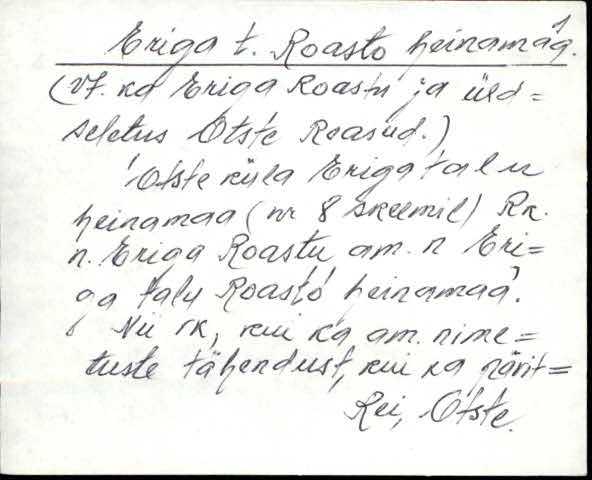 1
Eriga t. Roasto heinamàa.
(vt. ka Eriga Roastu ja üld=
seletus Otste Roasud.)
Otste küla Eriga talu
heinamaa (nr 8 skeemil) Rk.
n. Eriga Roastu am. n Eri=
ga talu Roasto heinamaà.
Nii rk, kui ka am. nime=
tuste tähendust, kui ka pärit=
Kei, Otste.